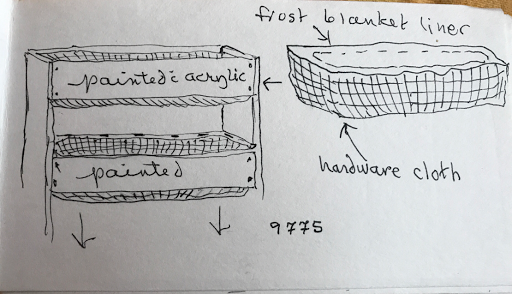 frost blanket liner
painted c̄ acrylic
painted
hardware cloth
9775